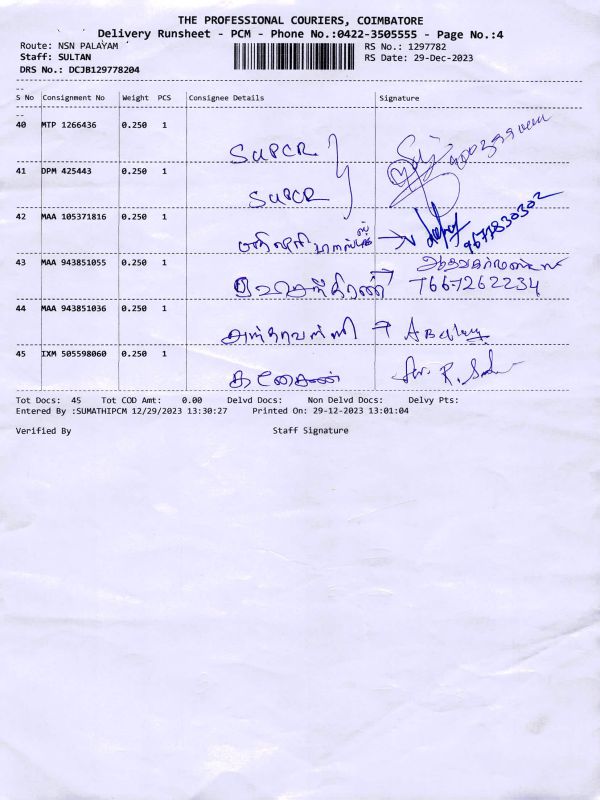 THE PROFESSIONAL COURIERS, COIMBATORE
Delivery Runsheet - PCM - Phone No.:0422-3505555 - Page No.:4
Route: NSN PALAYAM RS No.: 1297782
Staff: SULTAN RS Date: 29-Dec-2023
DRS No.: DCJB129778204
S No Consignment No Weight PCS Consignee Details Signature
40 MTP 1266436 0.250 1 SUPER
41 DPM 425443 0.250 1 SUPER
42 MAA 105371816 0.250 1 9677830302
43 MAA 943851055 0.250 1 7667262234
44 MAA 943851036 0.250 1
45 IXM 505598060 0.250 1 கணேசன்
Tot Docs: 45 Tot COD Amt: 0.00 Delvd Docs: Non Delvd Docs: Delvy Pts:
Entered By :SUMATHIPCM 12/29/2023 13:30:27 Printed On: 29-12-2023 13:01:04
Verified By Staff Signature